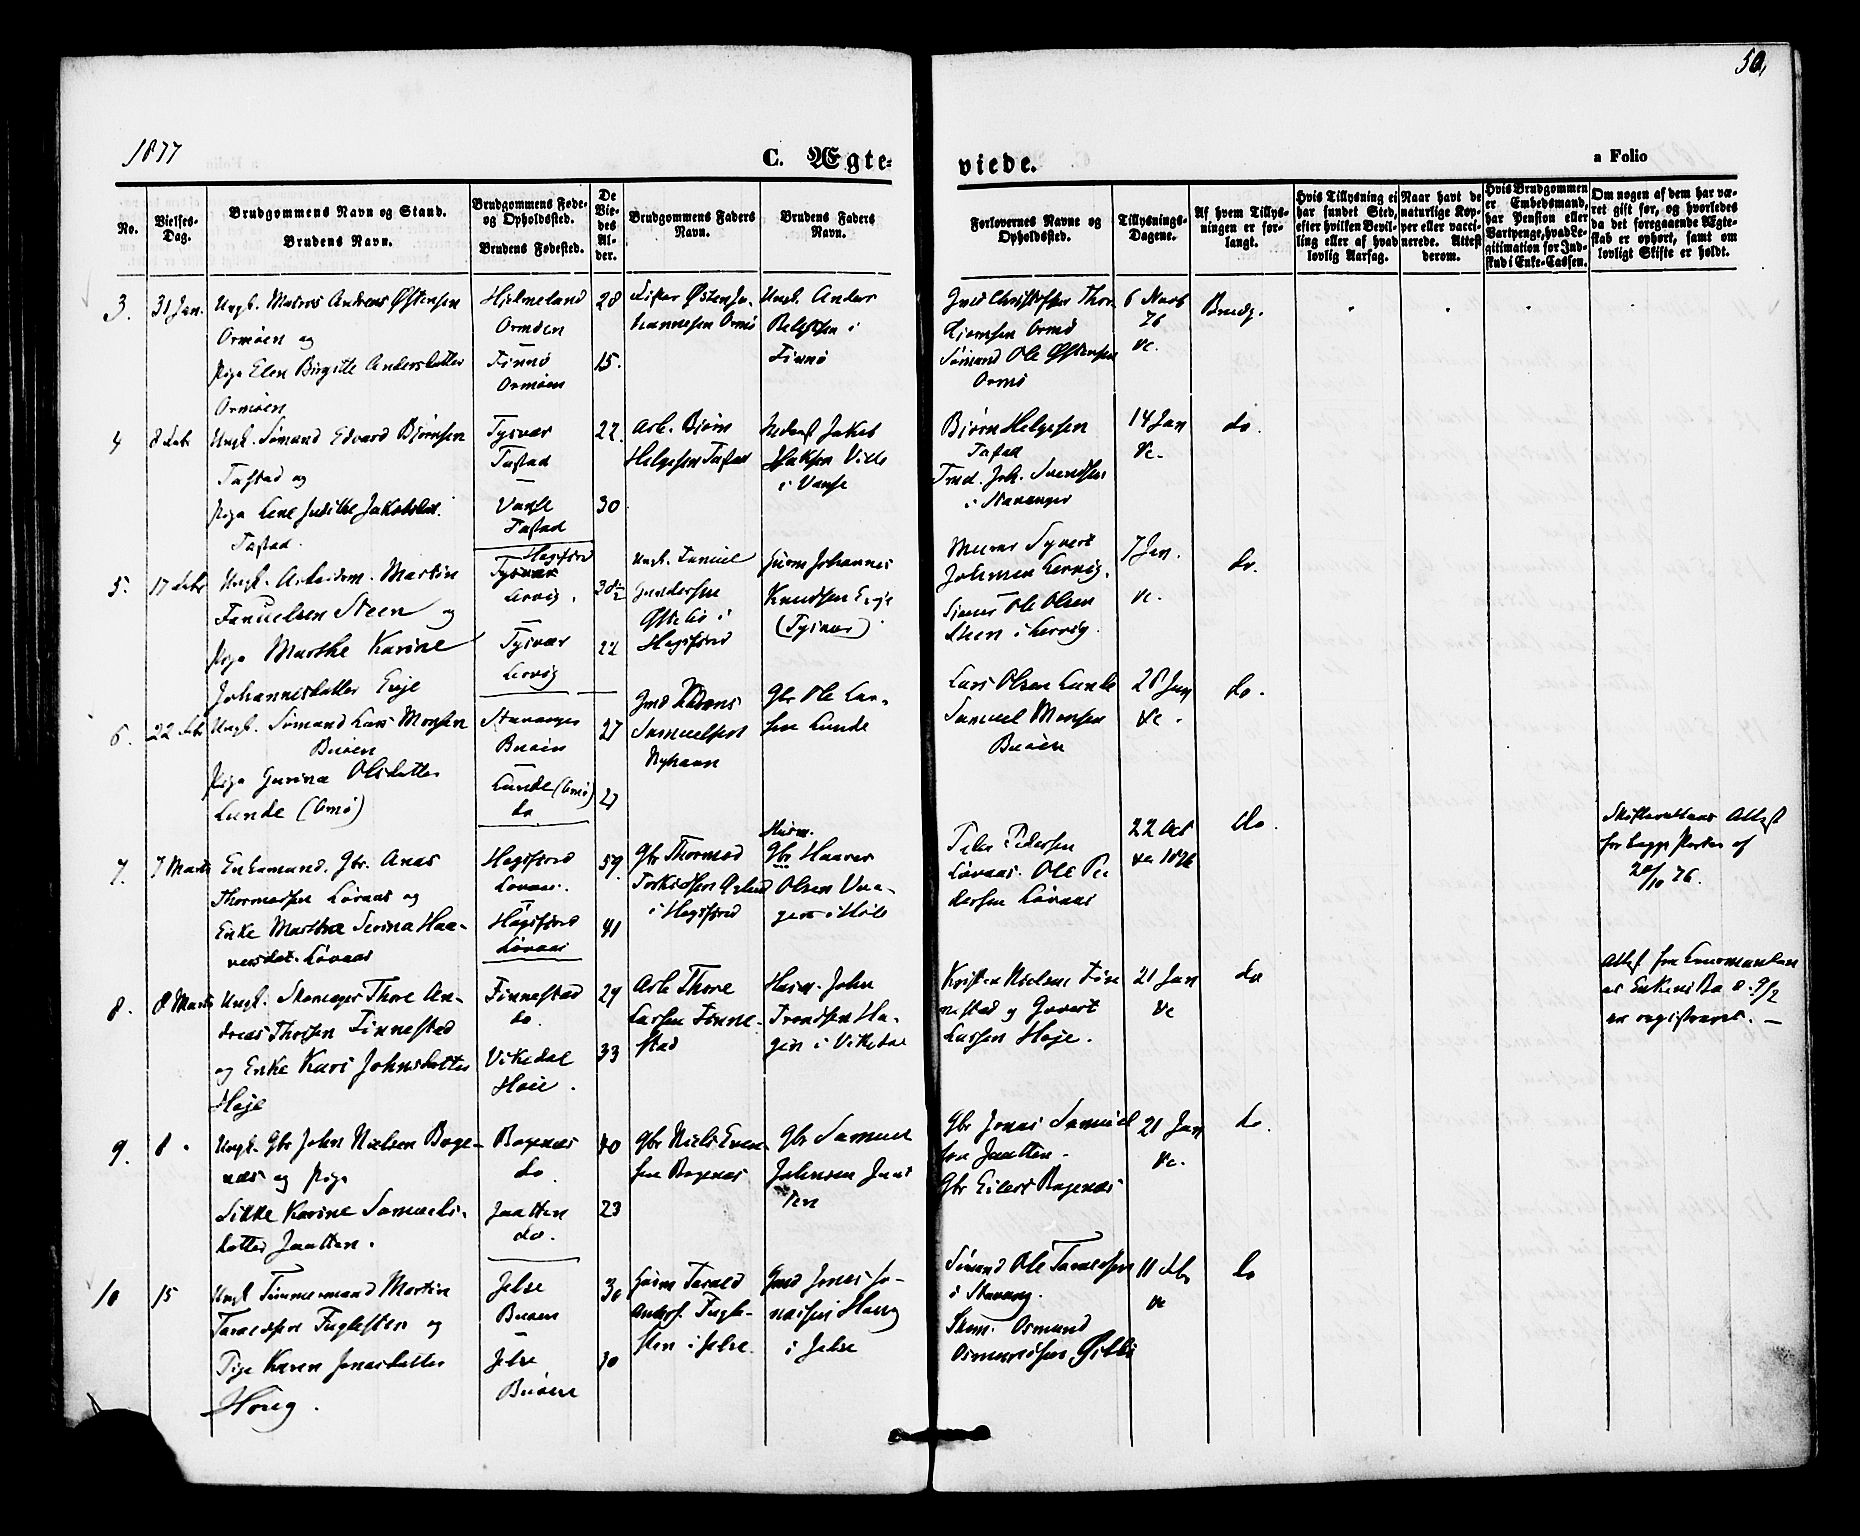 50,
1877
C. Ægte-
viede.
a Folio
No.
Vielses-
Dag.
Brudgommens Navn og Stand.
Brudens Navn.
Brudgommens Føde-
og Opholdssted.
Brudens Fødested.
De
Vie-
des
Al-
der.
Brudgommens Faders
Navn.
Brudens Faders
Navn.
Forlovernes Navne og
Opholdssted.
Tillysnings-
Dagene.
Af hvem Tillys-
ningen er for-
langt.
Hvis Tillysning ei
har fundet Sted,
efter hvilken Bevil-
ling eller af hvad
lovlig Aarsag.
Naar havt de
naturlige Kop-
per eller vacci-
nerede. Attest
derom.
Hvis Brudgommen
er Embedsmand,
har Pension eller
Vartpenge, hvad Le-
gitimation for Ind-
skud i Enke-Cassen.
Om nogen af dem har væ-
ret gift før, og hvorledes
da det foregaaende Ægte-
skab er ophørt, samt om
lovligt Skifte er holdt.
3.
31 Jan.
Ungk. Matros Andreas Østensen
Ormøen og
Pige Elen Birgitte Andersdatter
Ormøen
Hjelmeland
Ormøen
Finnø
Ormøen
28
15.
Østen Jo-
hannesen Ormø
Ungk. Ander
i
Finnø
Christoffer Thor
Ormø
Sømand Ole Østensen
Ormø
6 Novb
76
vc.
Brudg.
4
8 Febr
Ungk. Sømand Edvard Bjørnsen
Tastad og
Pige Lene Judithe Jakobsdat.
Tastad.
Tysvær
Tastad
Vanse
Tastad
22.
30
Arb. Bjørn
Helgesen Tastad
Jakob
i Vanse
Bjørn Helgesen
Tastad
Joh. Svendsen
i Stavanger
14 Jan
vc.
do.
5.
17 Febr
Ungk. Arbeidsm. Martin
Steen og
Pige Marthe Karine
Johannesdatter Eeje
Høgsfjord
Tysvær
Lervig.
Tysvær
Lervig
22
Ungk.
Gundersen
i
Høgsfjord
Johannes
Knudsen Eeje
(Tysvær)
Murer Syvert
Johnsen Lervig.
Ole Olsen
Steen i Lervig.
7 Jan.
vc.
do.
6.
22 Febr
Ungk. Sømand Lars Monsen
Buøen
Pige Gurine Olsdatter
Lunde (Omø)
Stavanger
Buøen
Lunde (Omø)
do.
27
27
Samuelsen
Nyhavn
Gbr Ole Lar-
sen Lunde
Lars Olsen Lunde
Samuel Monsen
Buøen
28 Jan
vc.
do.
7.
7 Marts
Enkemand. Gbr. Anas
Thormodsen Løvaas og
Enke Marthe Serina Haa-
versdat. Løvaas
Høgsfjord
Løvaas.
Høgsfjord
Løvaas
59.
41
Gbr Thormod
Torkildsen
i Høgsfjord
Husm.
Gbr Haaver
Olsen Vaa-
gen i Høle
Peder Pedersen
Løvaas. Ole Pe-
dersen Løvaas
22 Oct
vc 1876
do.
Skifteretten's Attest
for
20/10 76.
8.
8 Marts
Ungk. Skomager Thore An-
dreas Thorsen Finnestad
og Enke Kari Johnsdatter
Høje
Finnestad
do.
Vikedal
Høie.
29
33
Arb Thore
Larsen Finne-
stad
Husm. John
Trondsen Ha-
gen i Vikedal
Kristen Nielsen Fin
nestad og Govert
Larsen Høje.
21 Jan
vc
do
Attest fra Lensmanden
Enkens Bo d. 9/2
er registreret. —
9.
8
Ungk. Gbr John Nielsen Boge-
næs og Pige
Sikke Karine Samuels-
datter Jaatten.
Bogenæs
do.
Jaatten
do.
40
23
Gbr Niels Even-
sen Bogenæs
Gbr Samuel
Johnsen Jaat
ten
Gbr Jonas Samuel
sen Jaatten.
Gbr Eilert Bogenæs
21 Jan
vc.
do.
10
15
Ungk Tømmermand Martin
Taraldsen Fuglesten og
Pige Karen Jonasdatter
Houg.
Jelse
Buøen
Jelse
Buøen
30
30
Husm Tarald
Anders. Fugle-
sten i Jelse.
Gmd Jonas Jo-
nassen Houg
i Jelse
Sømand Ole Taraldsen
i Stavang.
Skom. Osmund
Osmundsen
11 Feb
vc
do